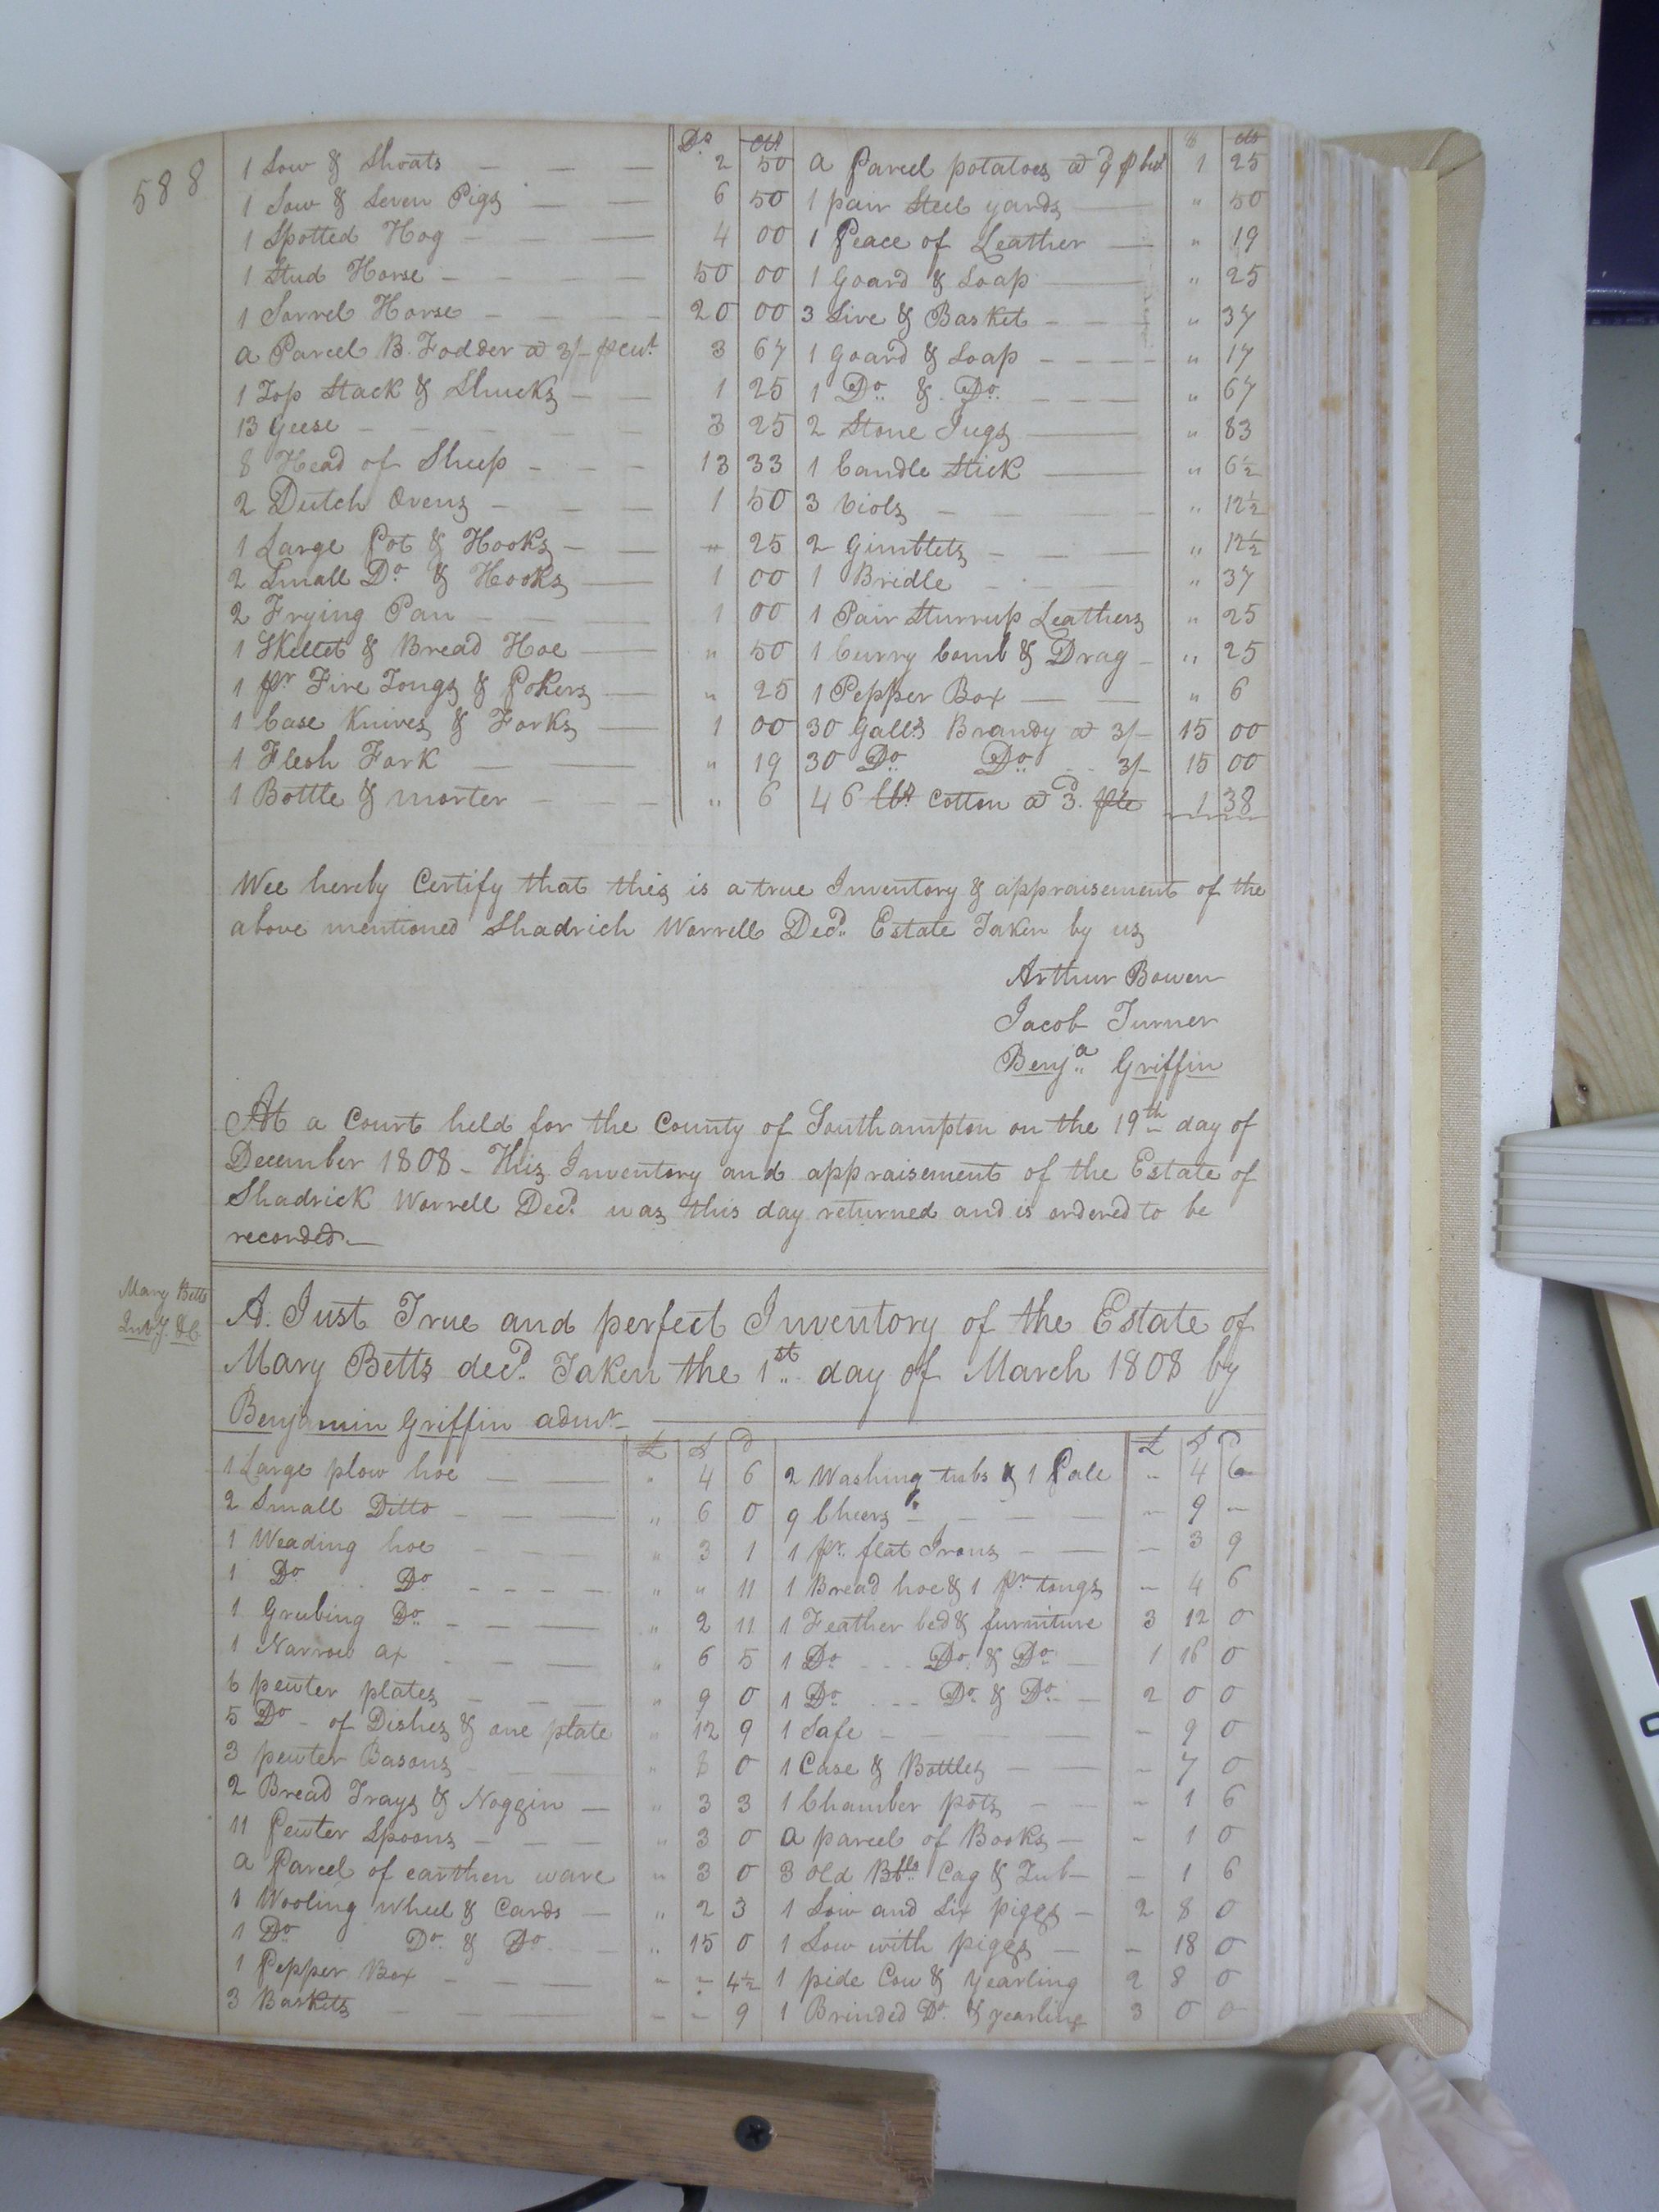 588
Ds cts
1 Sow & Shoats — — — 2 50
1 Sow & Seven Pigs — — 6 50
1 Spotted Hog — — — 4 00
1 Stud Horse — — — — 50 00
1 Sorrel Horse — — — — 20 00
a Parcel B. Fodder @ 3/- p Cwt 3 67
1 Top Stack & Shucks — — 1 25
13 Geese — — — — — — 3 25
8 Head of Sheep — — — 13 33
2 Dutch Ovens — — — 1 50
1 Large Pot & Hooks — — " 25
2 Small Do & Hooks — 1 00
2 Frying Pan — — — 1 00
1 Skellet & Bread Hoe — " 50
1 pr Fire Tongs & Pokers — " 25
1 Case Knives & Forks — 1 00
1 Flesh Fork — — " 19
1 Bottle & morter — — — " 6
$ cts
a Parcel potatoes @ 9 p bus 1 25
1 pair Steel yards — " 50
1 Peace of Leather — " 19
1 Goard & Soap — " 25
3 Sive & Basket — — — " 37
1 Goard & Soap — — — — " 17
1 Do & Do — — — " 67
2 Stone Jugs — " 83
1 Candle Stick — " 6½
3 Viols — — — — " 12½
2 Gimblets — — — " 12½
1 Bridle — — " 37
1 Pair Sturrup Leathers " 25
1 Curry Comb & Drag — " 25
1 Pepper Box — — " 6
30 Galls Brandy @ 3/- 15 00
30 Do Do 3/- 15 00
46 lbs Cotton @ 3d 1 38
Wee hereby Certify that this is a true Inventory & appraisement of the
above mentioned Shadrich Worrell Decd. Estate Taken by us
Arthur Bowen
Jacob Turner
Benja Griffin
At a Court held for the County of Southampton on the 19th day of
December 1808 – This Inventory and appraisement of the Estate of
Shadrick Worrell Decd. was this day returned and is ordered to be
recorded.—
Mary Betts
Invy. &C
A. Just True and perfect Inventory of the Estate of
Mary Betts decd. Taken the 1st day of March 1808 by
Benjamin Griffin admr —
£ S d
1 Large plow hoe — — " 4 6
2 Small Ditto — — — " 6 0
1 Weading hoe — — — " 3 1
1 Do Do — — — — " " 11
1 Grubing Do — — — " 2 11
1 Narrow ax — — — " 6 5
6 pewter plates — — — " 9 0
5 Do – of Dishes & one plate " 12 9
3 pewter Basons — — — " 8 0
2 Bread Trays & Noggin — " 3 3
11 Pewter Spoons — — — " 3 0
a Parcel of earthen ware " 3 0
1 Wooling wheel & Cards — " 2 3
1 Do Do & Do — " 15 0
1 Pepper Box — — — " - 4½
3 Baskets — — — - - 9
£ S d
2 Washing tubs & 1 Pale " 4 6
9 Cheers — — — — - 9 -
1 pr flat Irons — — - 3 9
1 Bread hoe & 1 pr tongs - 4 6
1 Feather bed & furniture 3 12 0
1 Do Do & Do — 1 16 0
1 Do Do & Do — 2 0 0
1 Safe — — — - 9 0
1 Case & Bottles — — - 7 0
1 Chamber pots — — - 1 6
a parcel of Books — - 1 0
3 old Bbls Cag & Tub - - 1 6
1 Sow and Six piggs — 2 8 0
1 Sow with piggs — - 18 0
1 pide Cow & Yearling 2 8 0
1 Brinded Do. & yearling 3 0 0